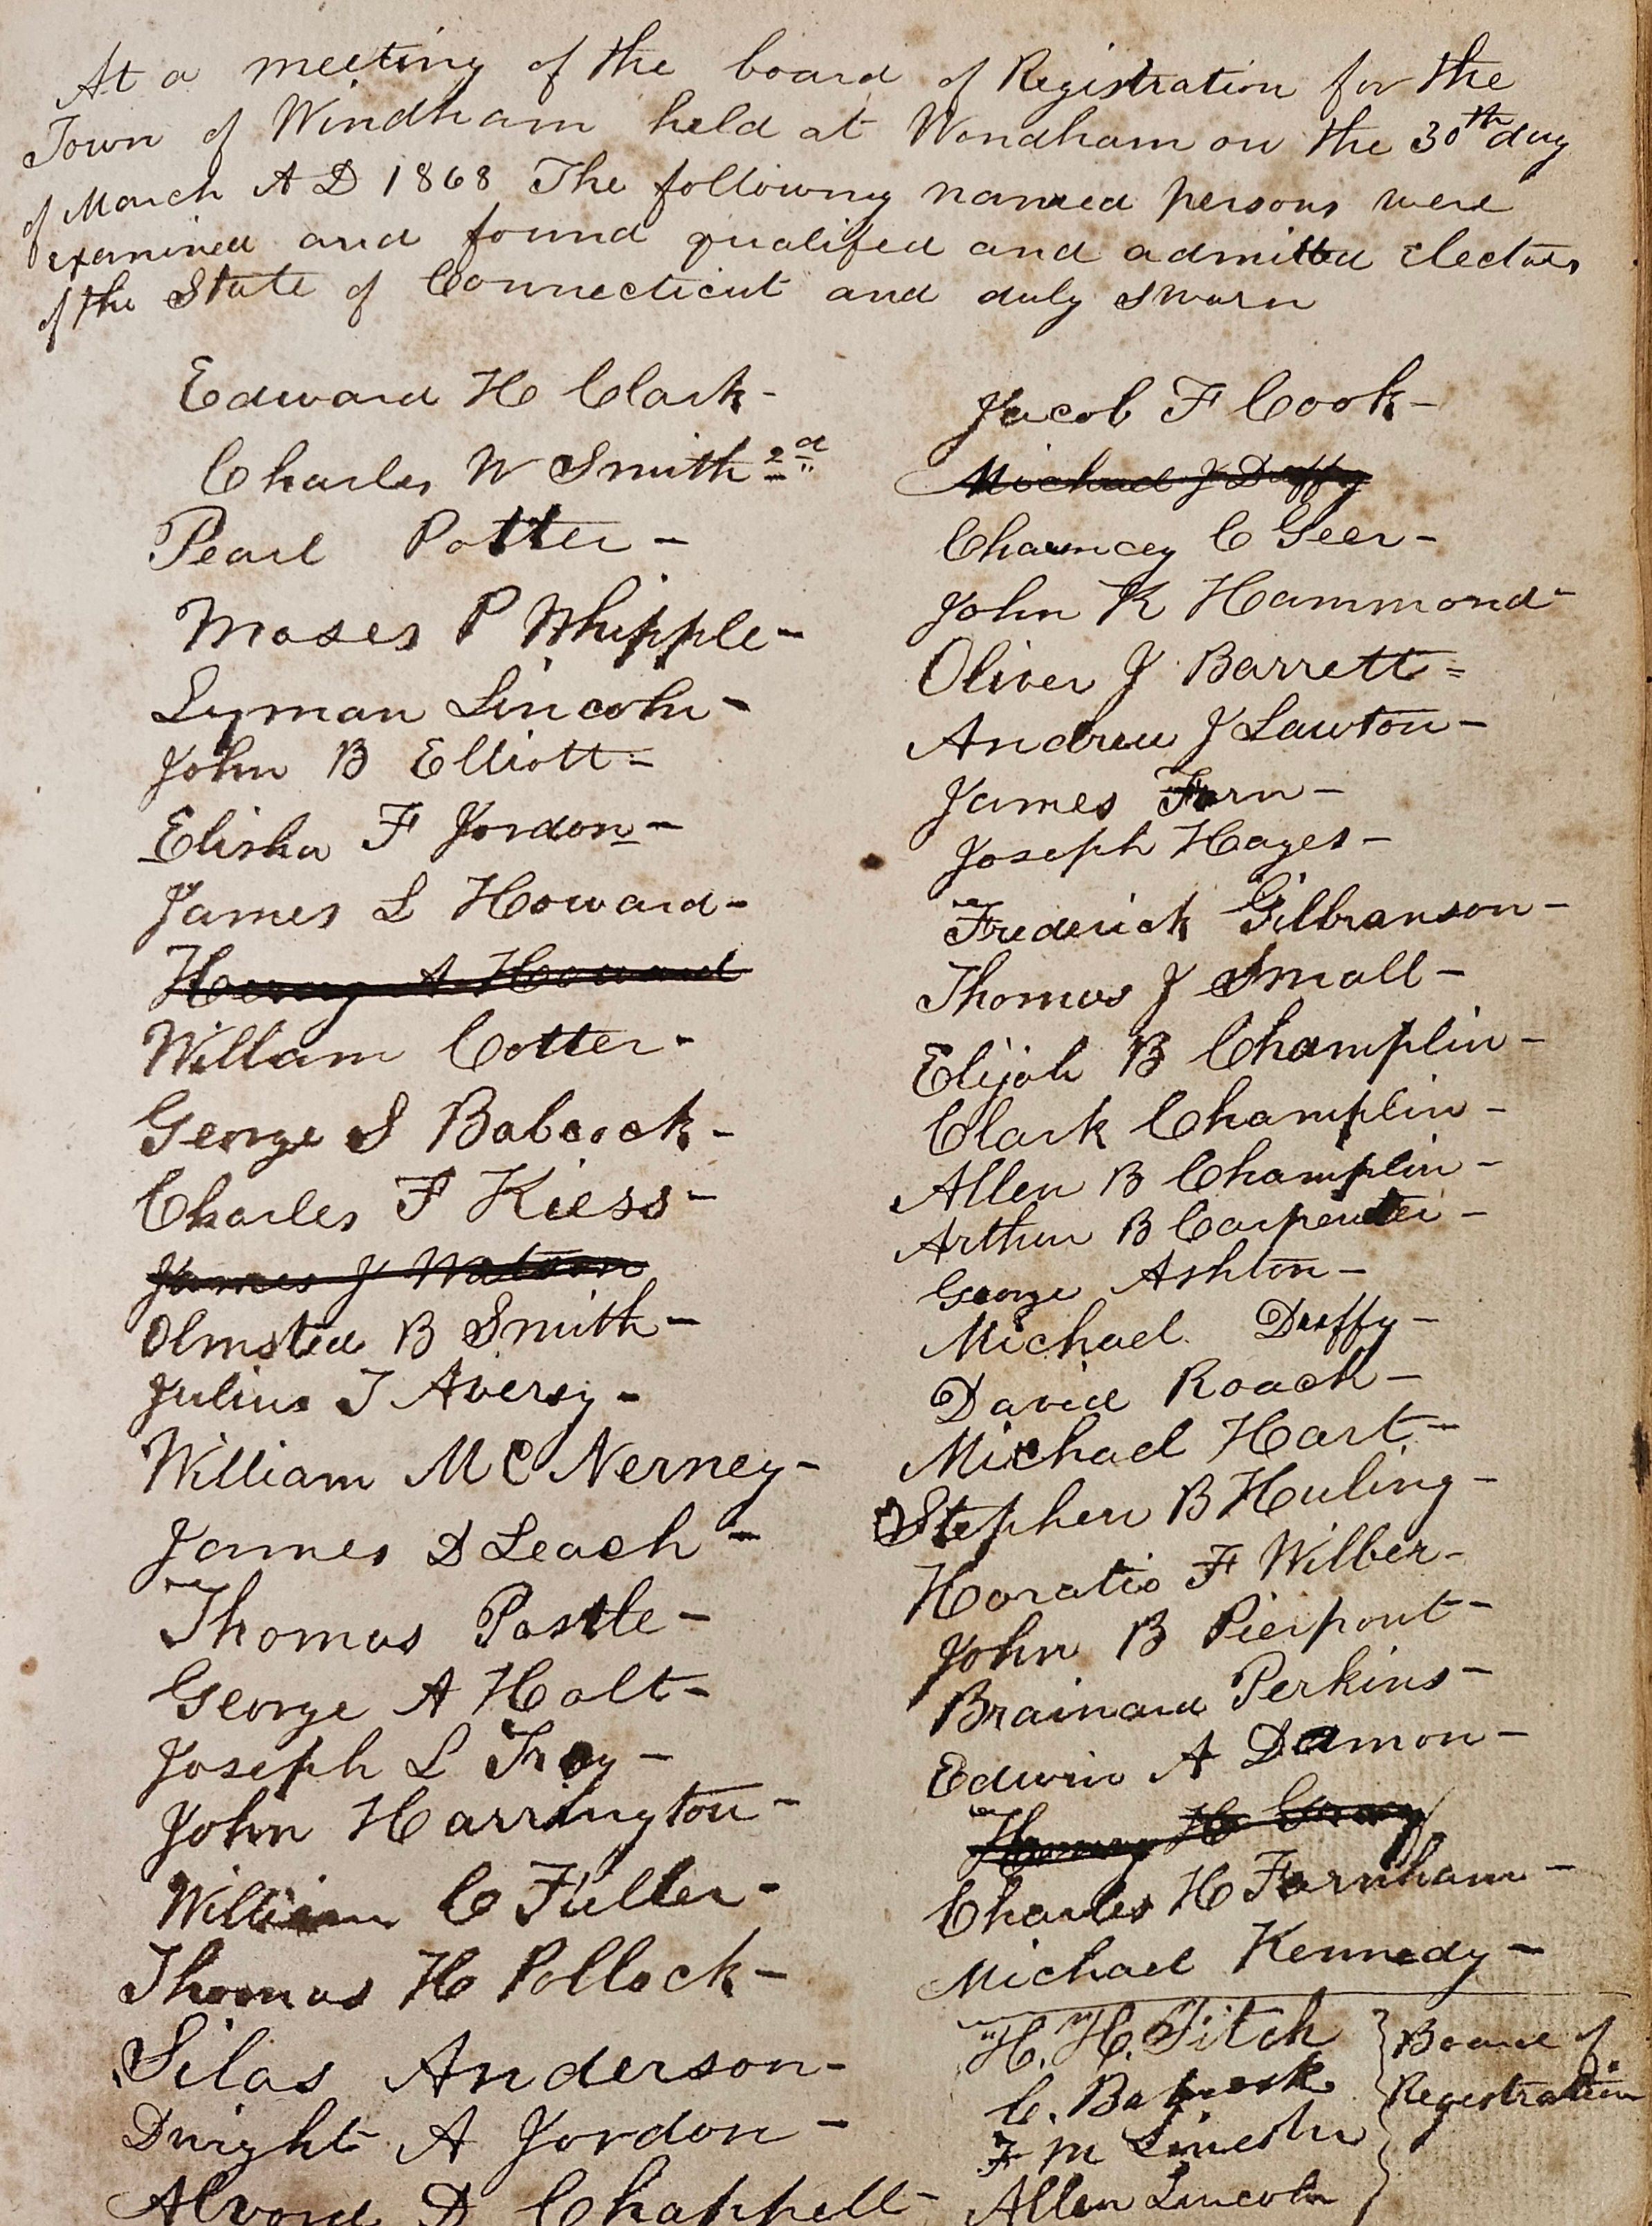 At a meeting of the board of Registration for the
Town of Windham held at Windham on the 30th day
of March A D 1868 The following named persons were
examined and found qualified and admitted electors
of the State of Connecticut and duly sworn
Edward H Clark -
Charles W Smith 2d
Pearl Potter -
Moses P Whipple -
Lyman Lincoln -
John B Elliott -
Elisha F Jordon -
James L Howard -
Henry A Howard
William Cotter -
George S Babcock -
Charles F Kiess -
James J Watson
Olmsted B Smith -
Julius T Avery -
William Mc Nerney -
James D Leach -
Thomas Postle -
George A Holt -
Joseph L Troy -
John Harrington -
William C Fuller -
Thomas H Pollock -
Silas Anderson -
Dwight A Jordon -
Alvord D Chappell -
Jacob F Cook -
Michael J Duffy
Chauncey C Geer -
John K Hammond -
Oliver J Barrett -
Andrew J Lawton -
James Forn -
Joseph Hayes -
Frederick Gilbranson -
Thomas J Small -
Elijah B Champlin -
Clark Champlin -
Allen B Champlin -
Arthur B Carpenter -
George Ashton -
Michael Duffy -
David Roach -
Michael Hart -
Stephen B Huling -
Horatio F Wilber -
John B Pierpont -
Brainard Perkins -
Edwin A Damon -
Henry H Gray
Charles H Farnham -
Michael Kennedy -
H. H. Fitch } Board of
C. Babcock Registration
F M Lincoln
Allen Lincoln